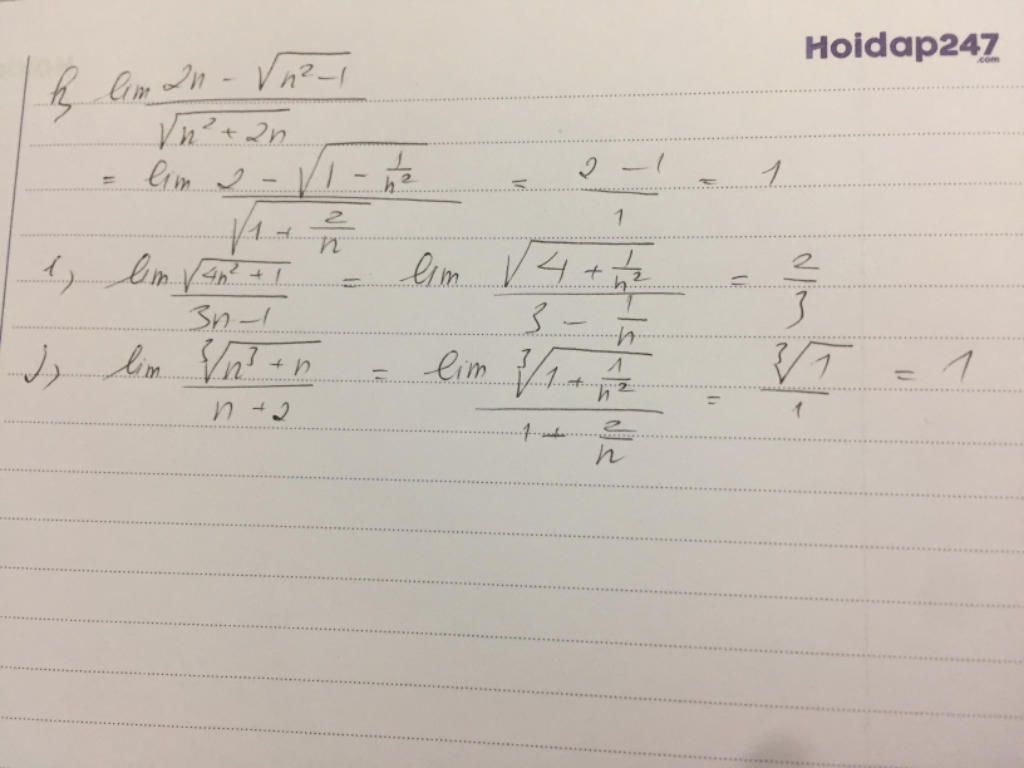 Hoidap247
.com
h, lim (2n - √(n² - 1)) / √(n² + 2n)
= lim (2 - √(1 - 1/n²)) / √(1 + 2/n) = (2 - 1) / 1 = 1
i, lim √(4n² + 1) / (3n - 1) = lim √(4 + 1/n²) / (3 - 1/n) = 2/3
j, lim ∛(n³ + n) / (n + 2) = lim ∛(1 + 1/n²) / (1 + 2/n) = ∛1 / 1 = 1